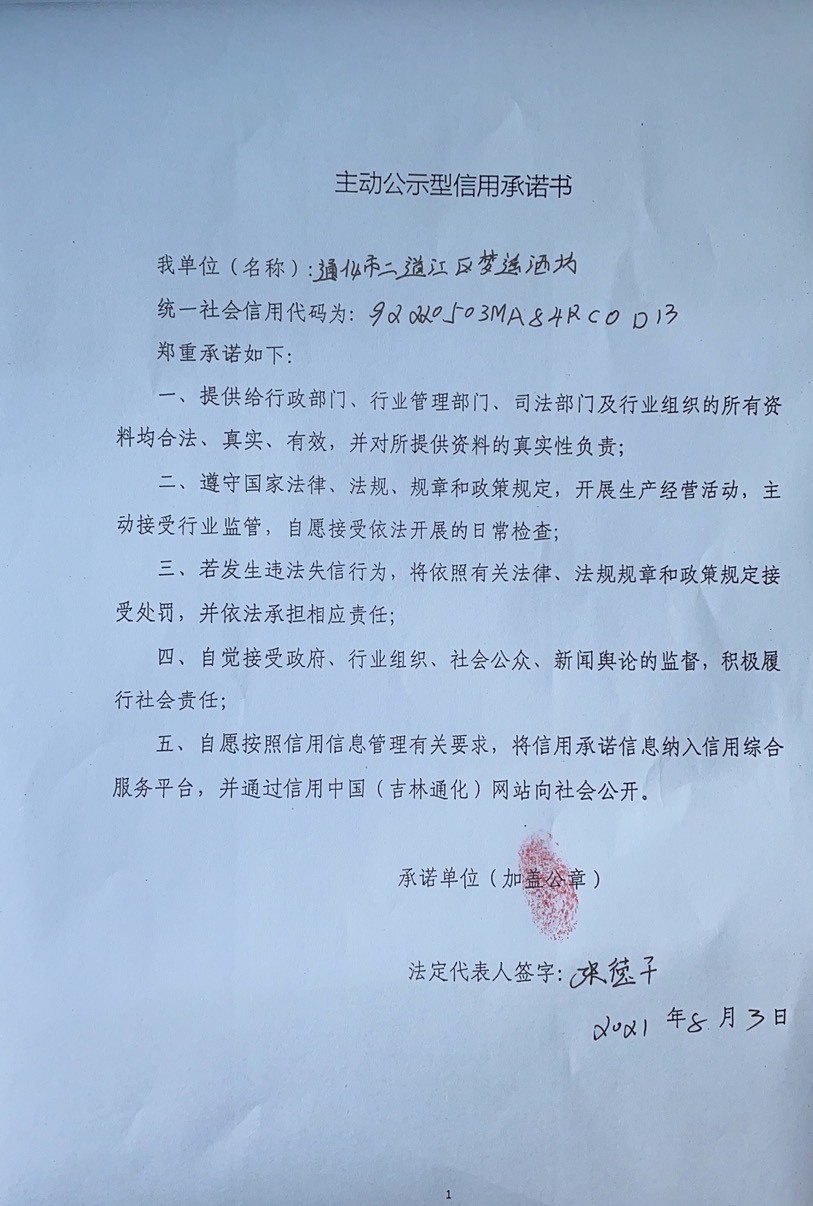 主动公示型信用承诺书
我单位（名称）：通化市二道江区梦 酒坊
统一社会信用代码为：92220503MA84RC0D13
郑重承诺如下：
一、提供给行政部门、行业管理部门、司法部门及行业组织的所有资
料均合法、真实、有效，并对所提供资料的真实性负责；
二、遵守国家法律、法规、规章和政策规定，开展生产经营活动，主
动接受行业监管，自愿接受依法开展的日常检查；
三、若发生违法失信行为，将依照有关法律、法规规章和政策规定接
受处罚，并依法承担相应责任；
四、自觉接受政府、行业组织、社会公众、新闻舆论的监督，积极履
行社会责任；
五、自愿按照信用信息管理有关要求，将信用承诺信息纳入信用综合
服务平台，并通过信用中国（吉林通化）网站向社会公开。
承诺单位（加盖公章）
法定代表人签字：
2021年8月3日
1